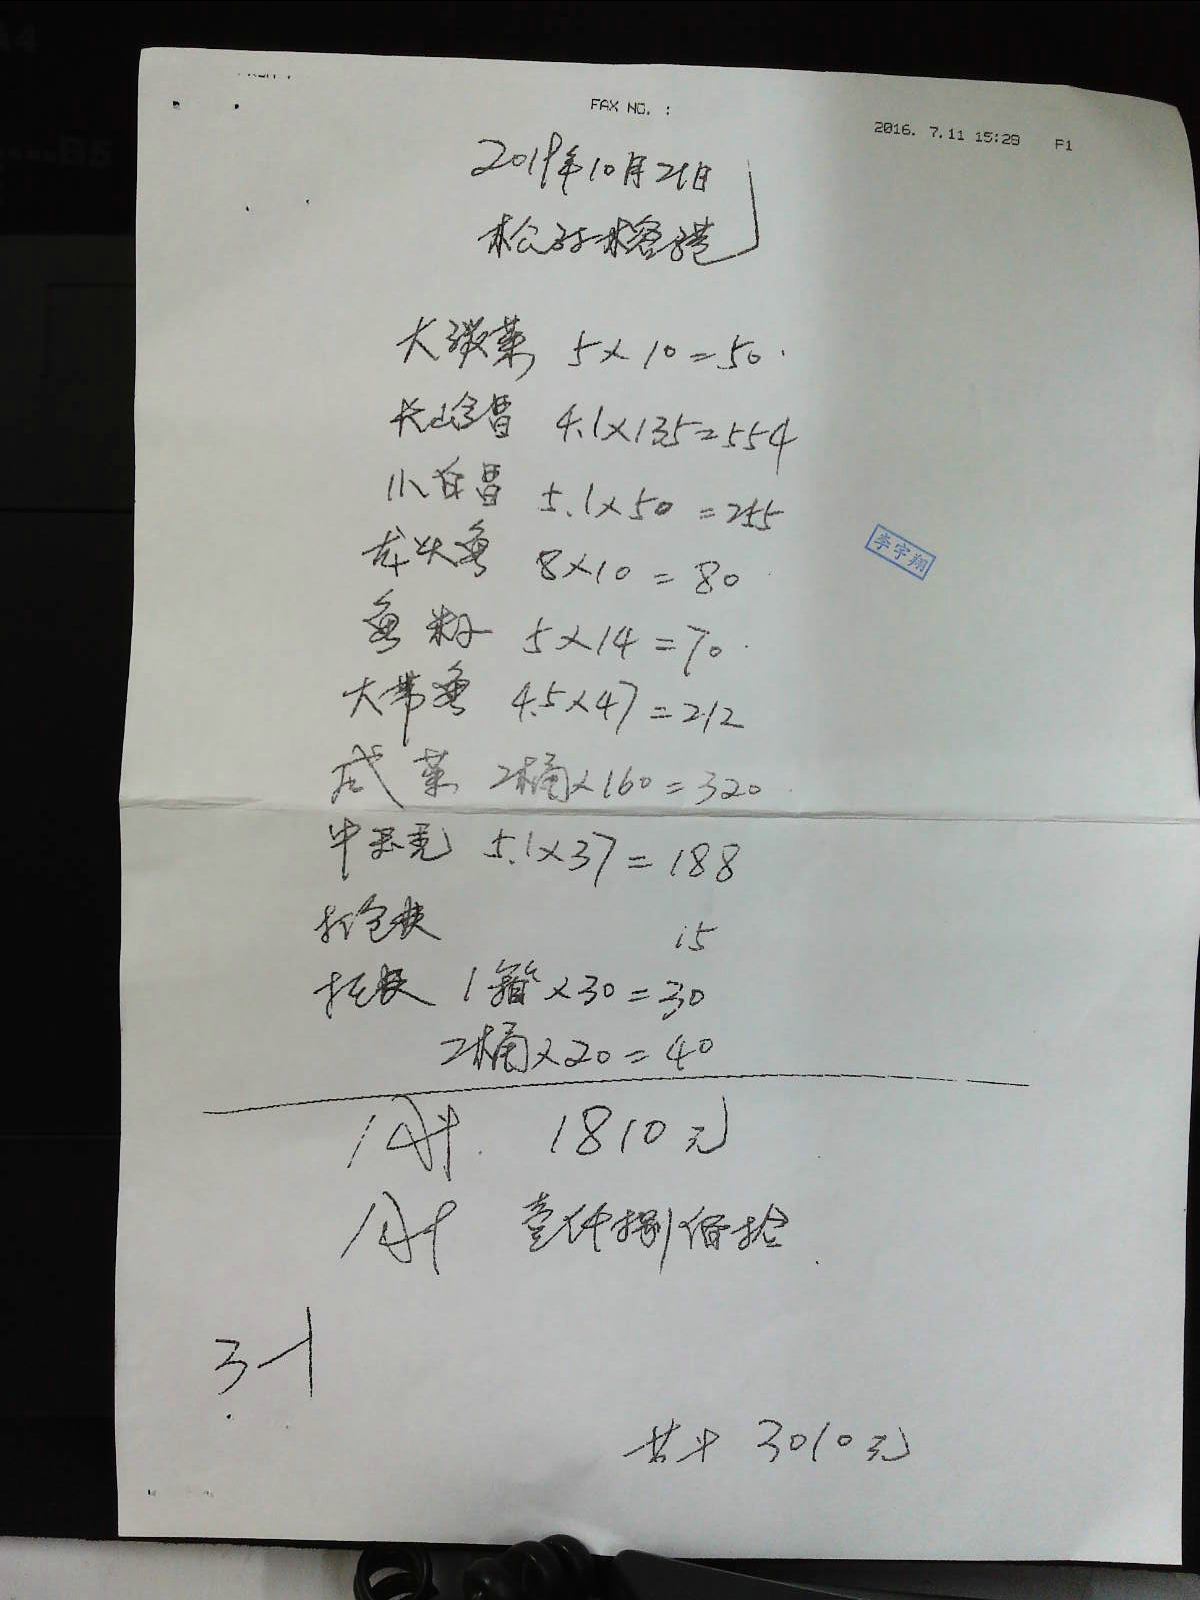 FAX NO. :
2016. 7.11 15:29 P1
2019年10月21日
大淡菜 5×10=50
4.1×135=554
小白昌 5.1×50=255
李宇翔
龙头鱼 8×10=80
鱼籽 5×14=70
大带鱼 4.5×47=212
咸菜 2桶×160=320
5.1×37=188
打包费 15
托费 1箱×30=30
2桶×20=40
合计 1810元
合计 壹仟捌佰拾
3-1
共计 3010元